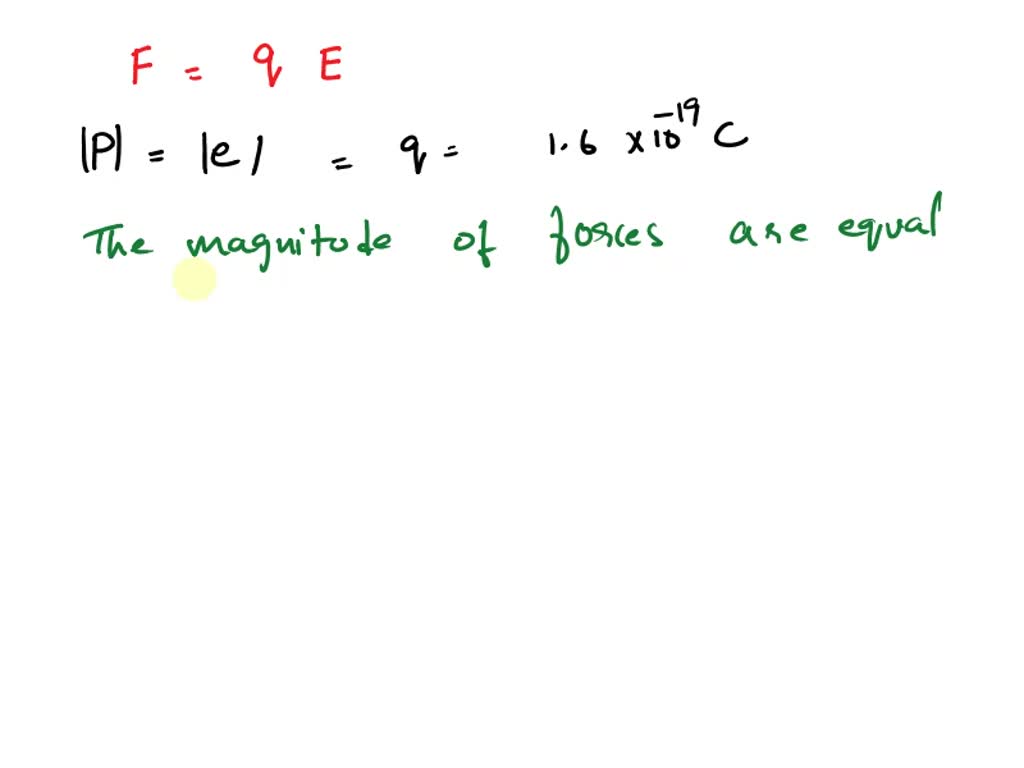 F = q E
|P| = |e| = q = 1.6 × 10⁻¹⁹ C
The magnitude of forces are equal